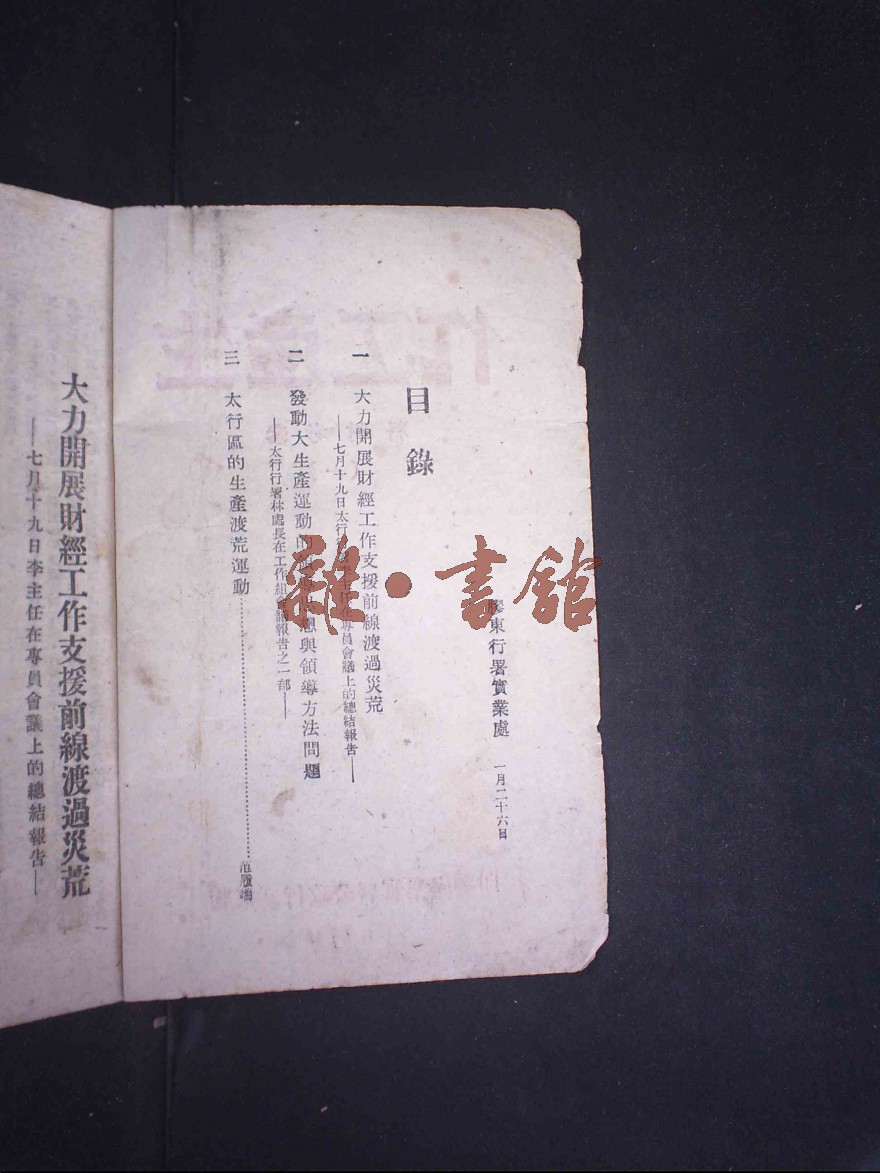 膠東行署實業處　一月二十六日
目錄
一　大力開展財經工作支援前線渡過災荒
——七月十九日太行 專員會議上的總結報告——
二　發動大生產運動的 與領導方法問題
——太行行署林處長在工作組 報告之一部——
三　太行區的生產渡荒運動……范
大力開展財經工作支援前線渡過災荒
——七月十九日李主任在專員會議上的總結報告——
雜·書館